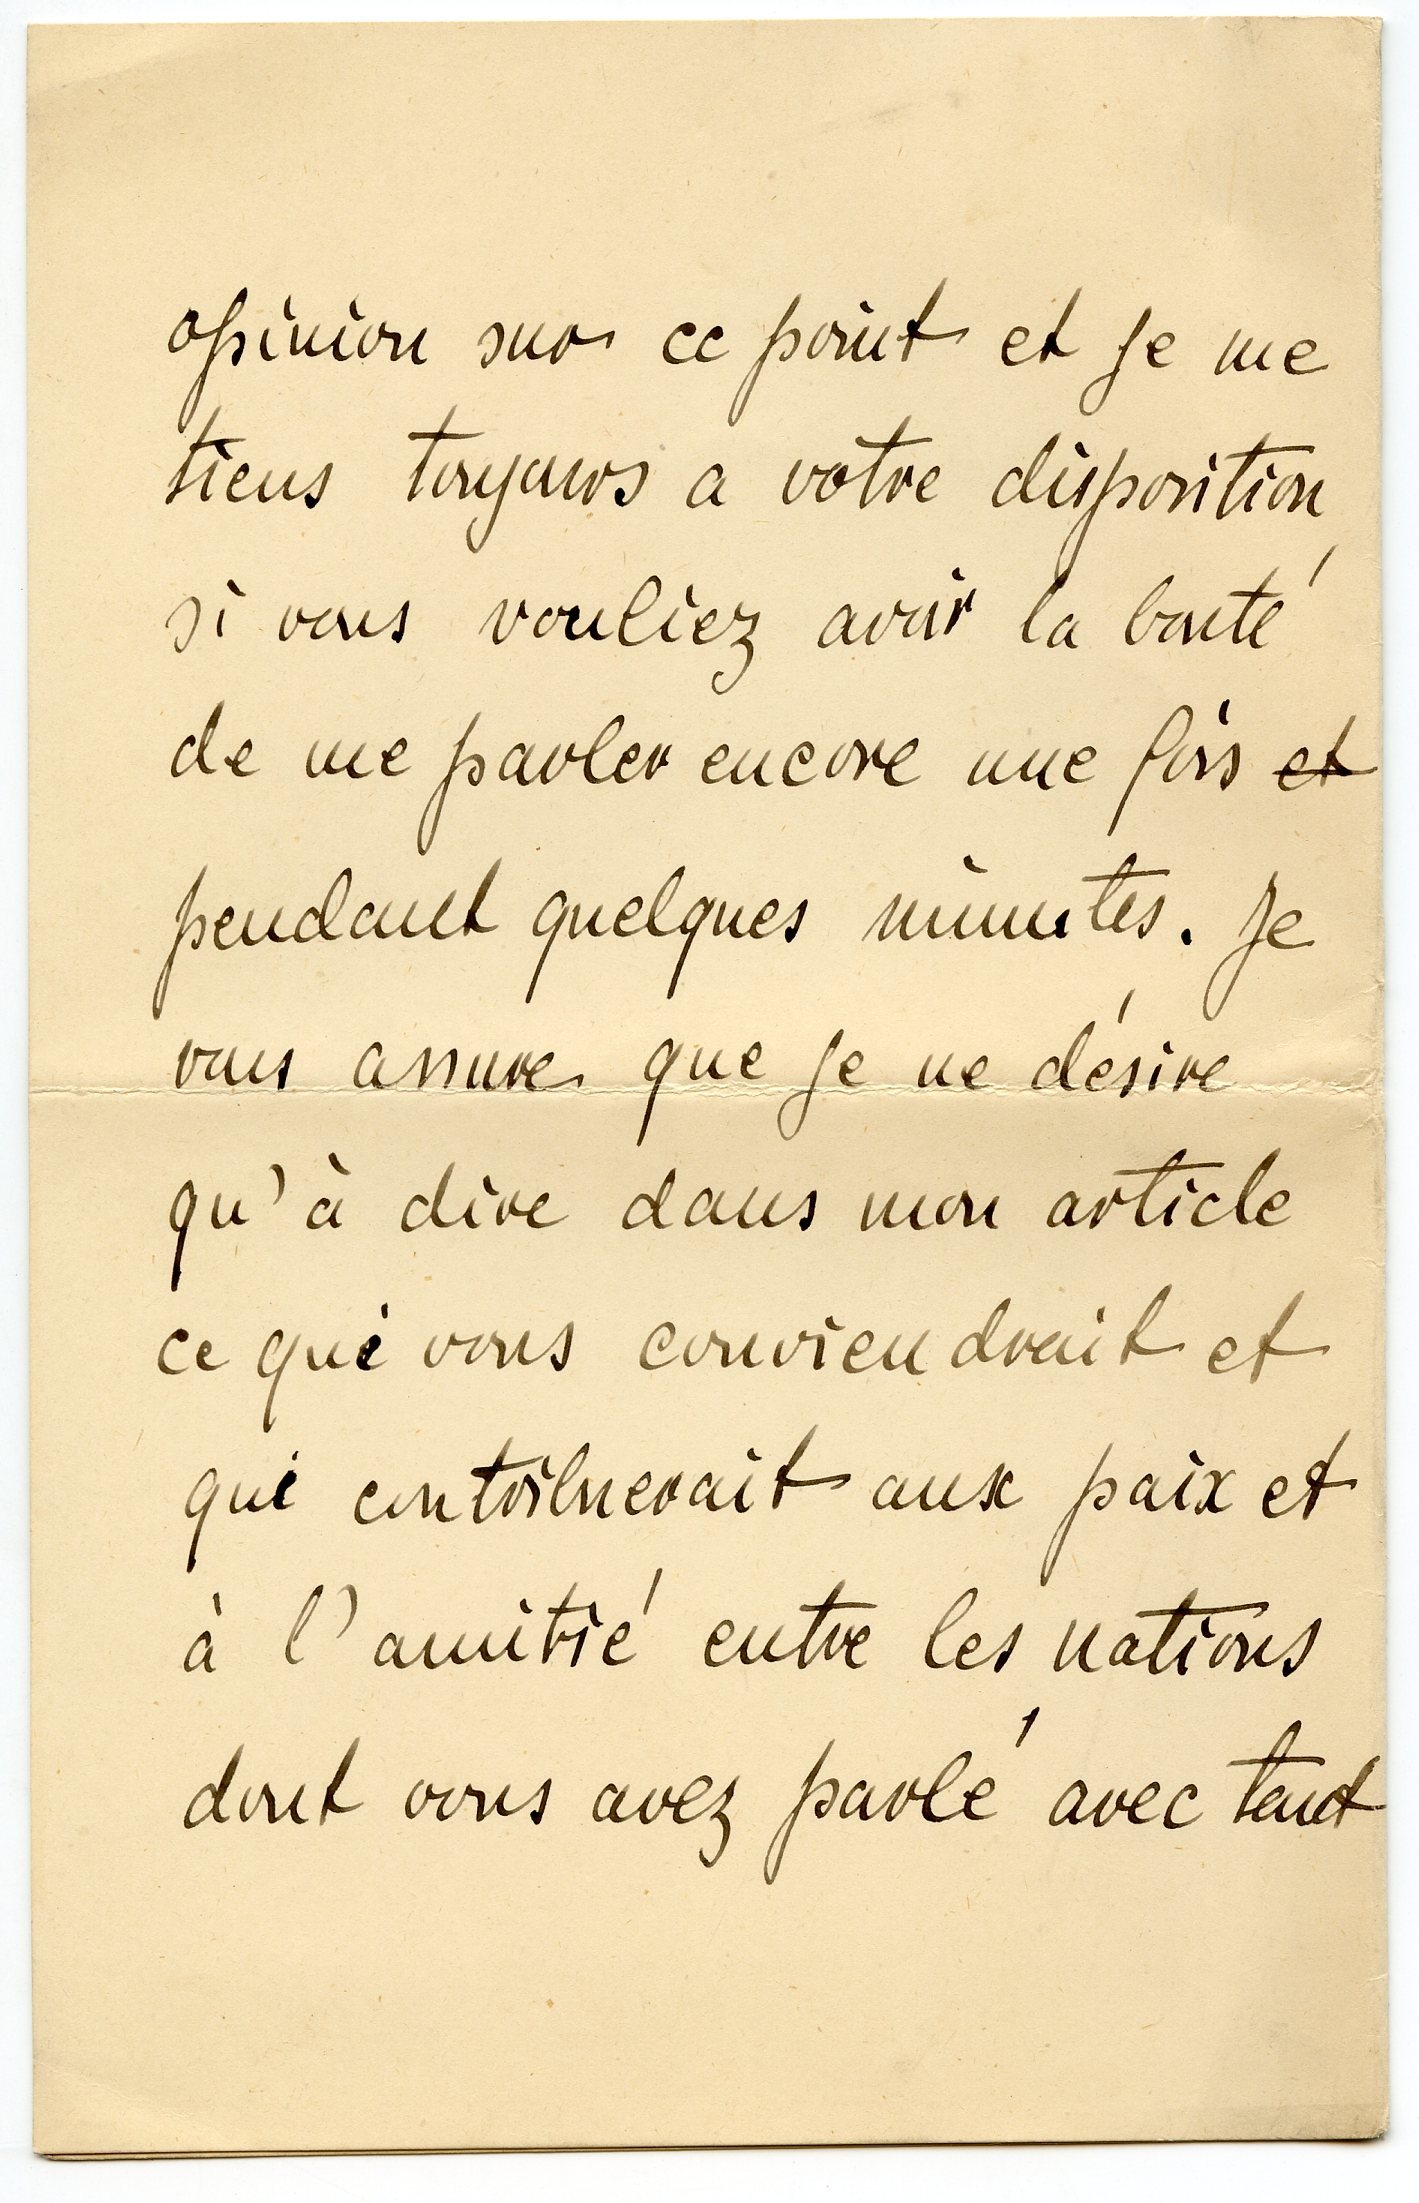 opinion sur ce point et je me
tiens toujours a votre disposition
si vous vouliez avoir la bonté
de me parler encore une fois et
pendant quelques minutes. Je
vous assure que je ne désire
qu'à dire dans mon article
ce qui vous conviendrait et
qui contribuerait aux paix et
à l'amitié entre les nations
dont vous avez parlé avec tant